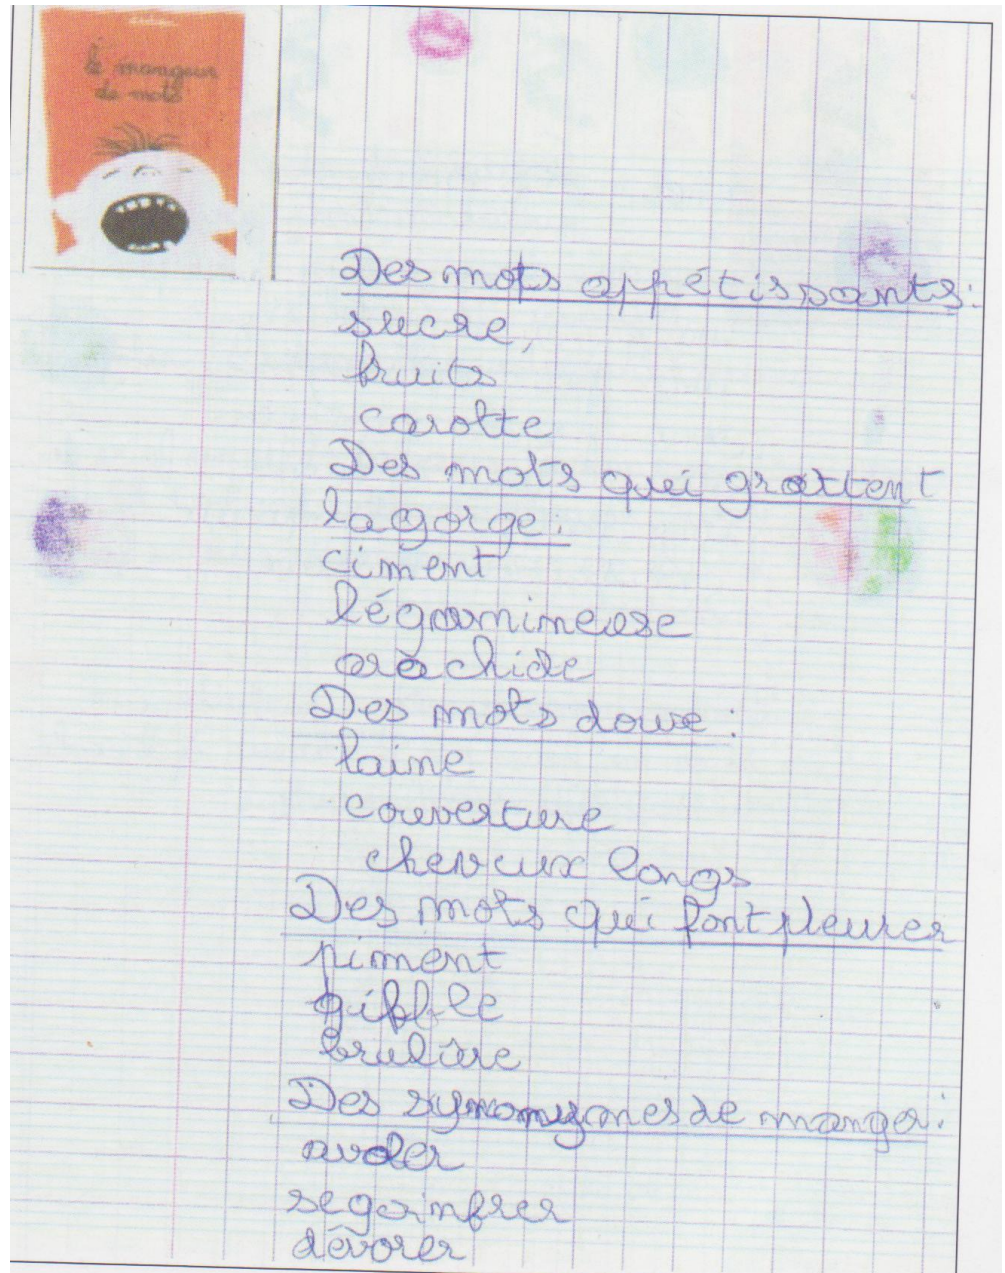 le mangeur
de mots
Des mots appétissants:
sucre,
fruits
carotte
Des mots qui grattent
la gorge:
ciment
légamineuse
arachide
Des mots doux:
laine
couverture
cheveux longs
Des mots qui font pleurer
piment
giffle
brulûre
Des synonymes de manger:
avaler
se goinfrer
dévorer